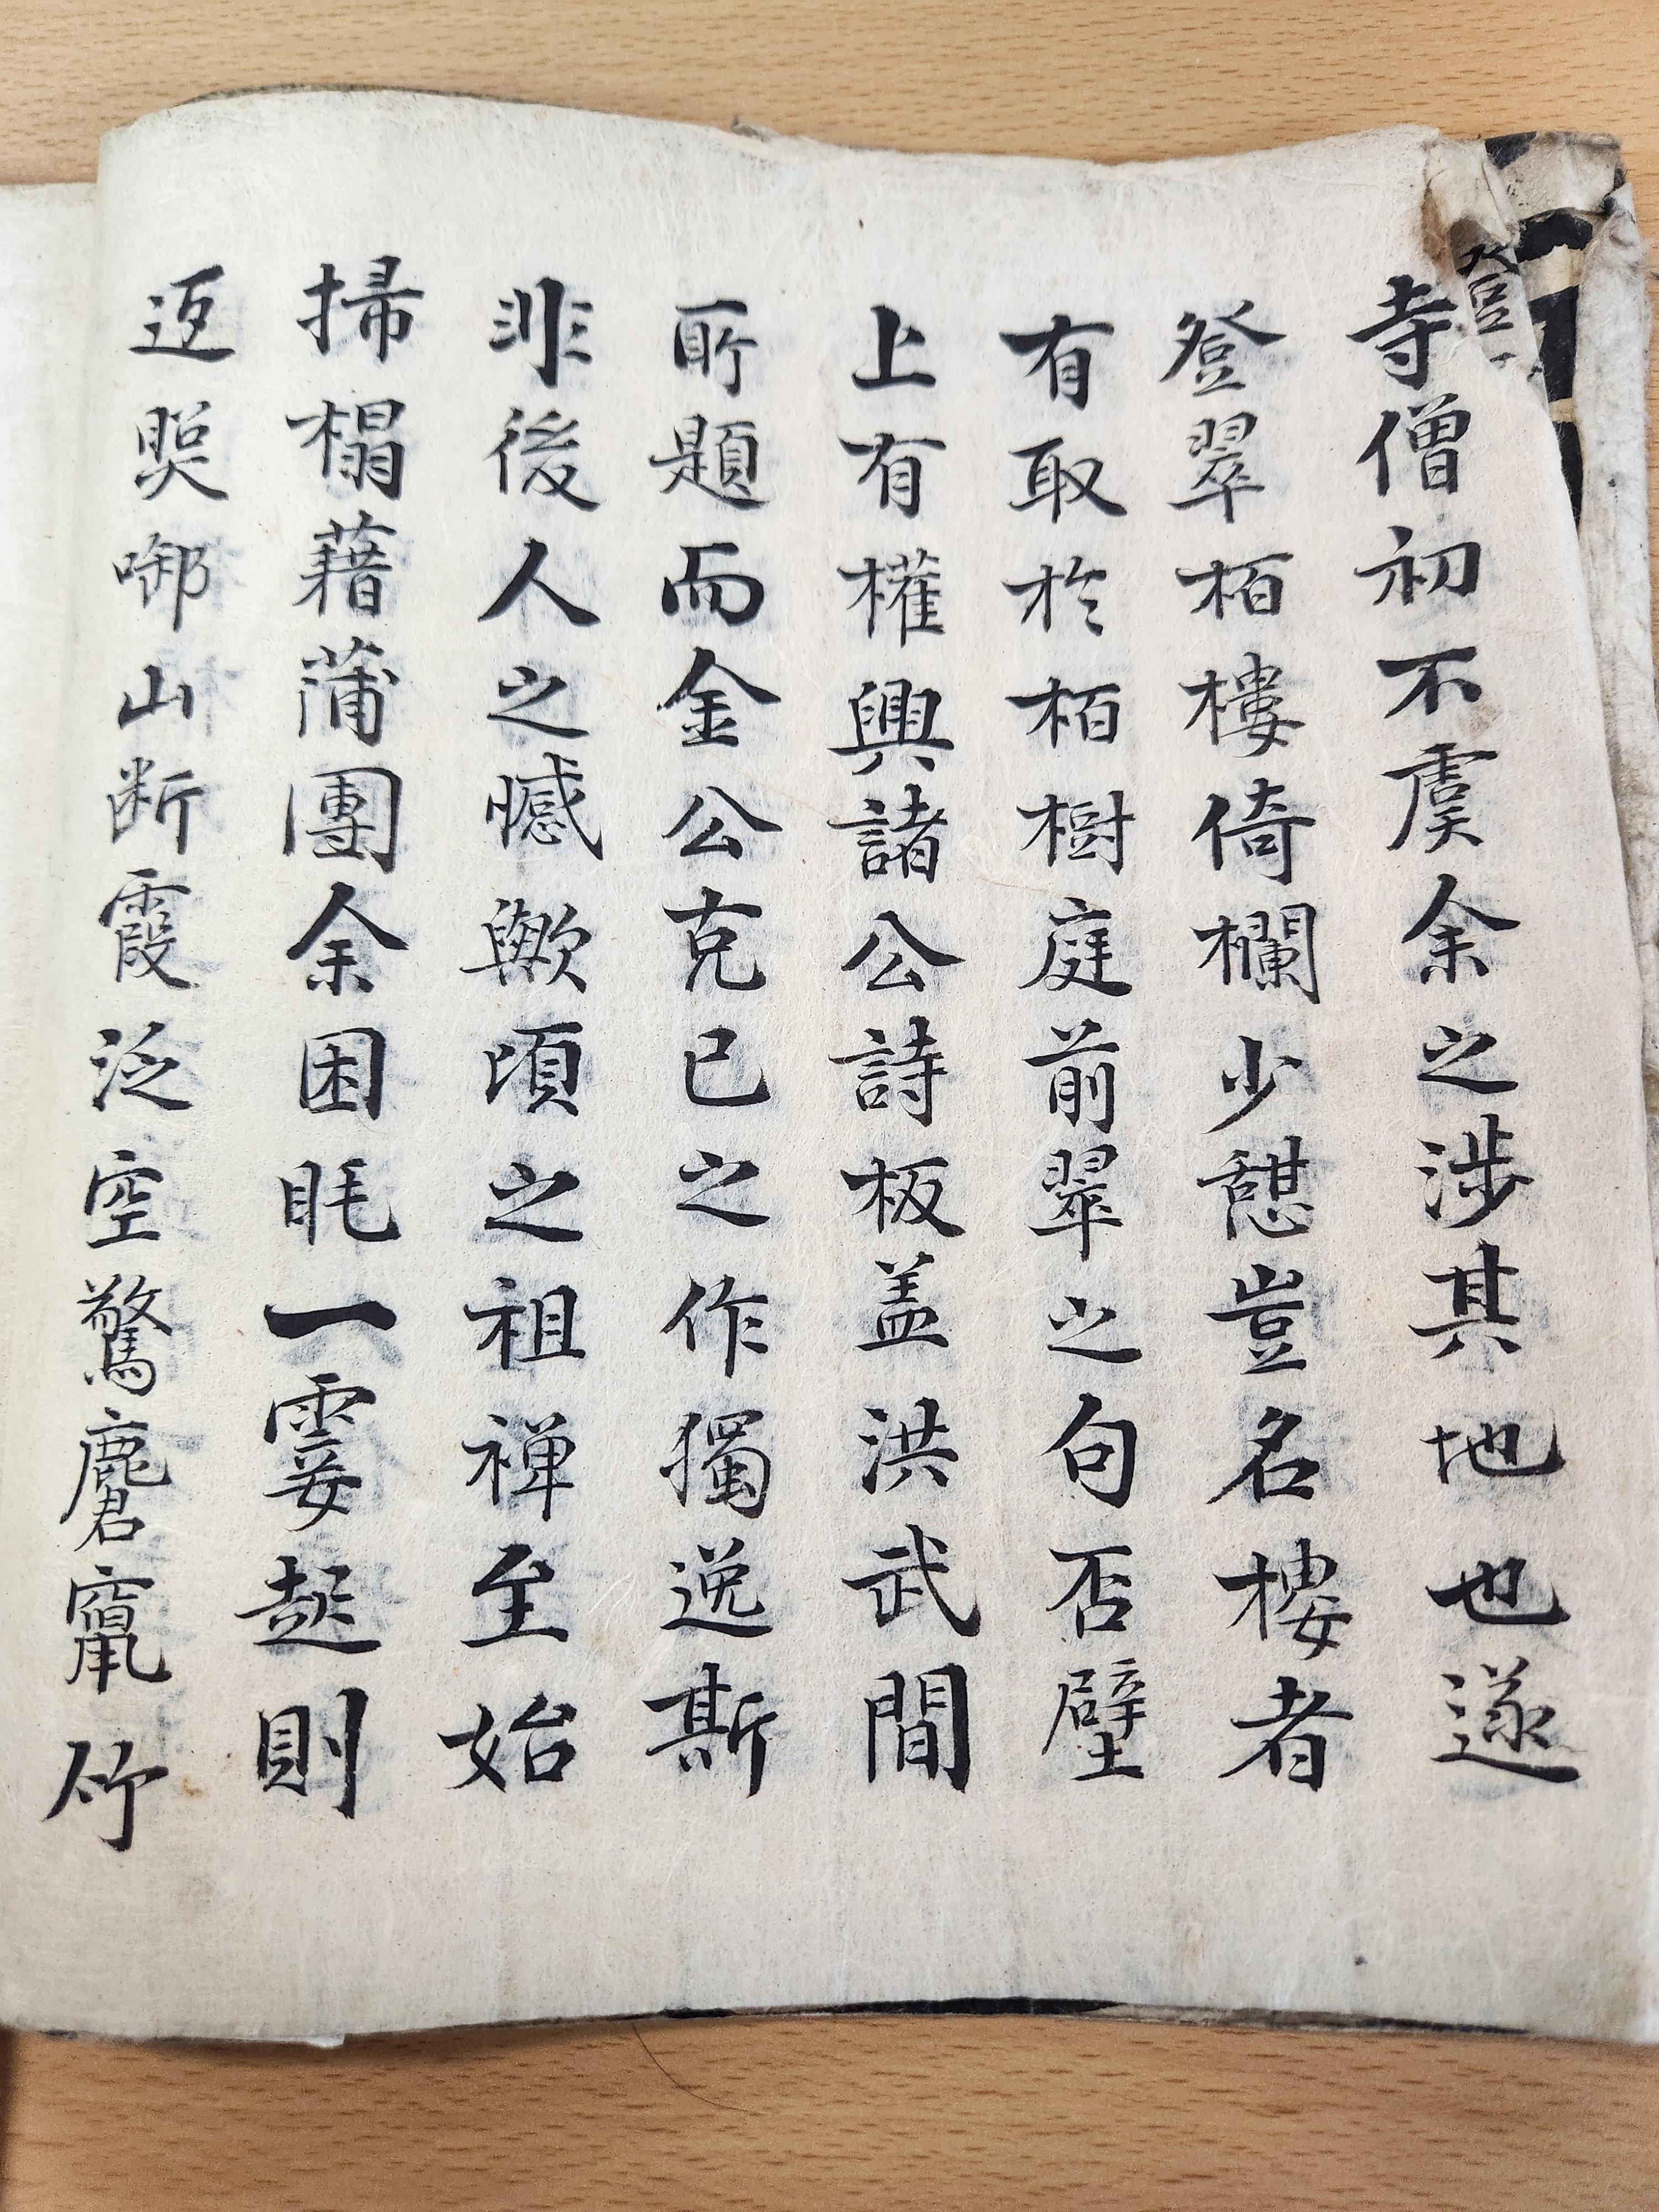 寺僧初不虞余之涉其地也遂
登翠栢樓倚欄少憇豈名樓者
有取於栢樹庭前翠之句否壁
上有權興諸公詩板盖洪武間
所題而金公克己之作獨逸斯
非後人之憾歟頃之祖禅至始
掃榻藉蒲團余困眊一霎起則
返照啣山断霞泛空驚麏竄竹